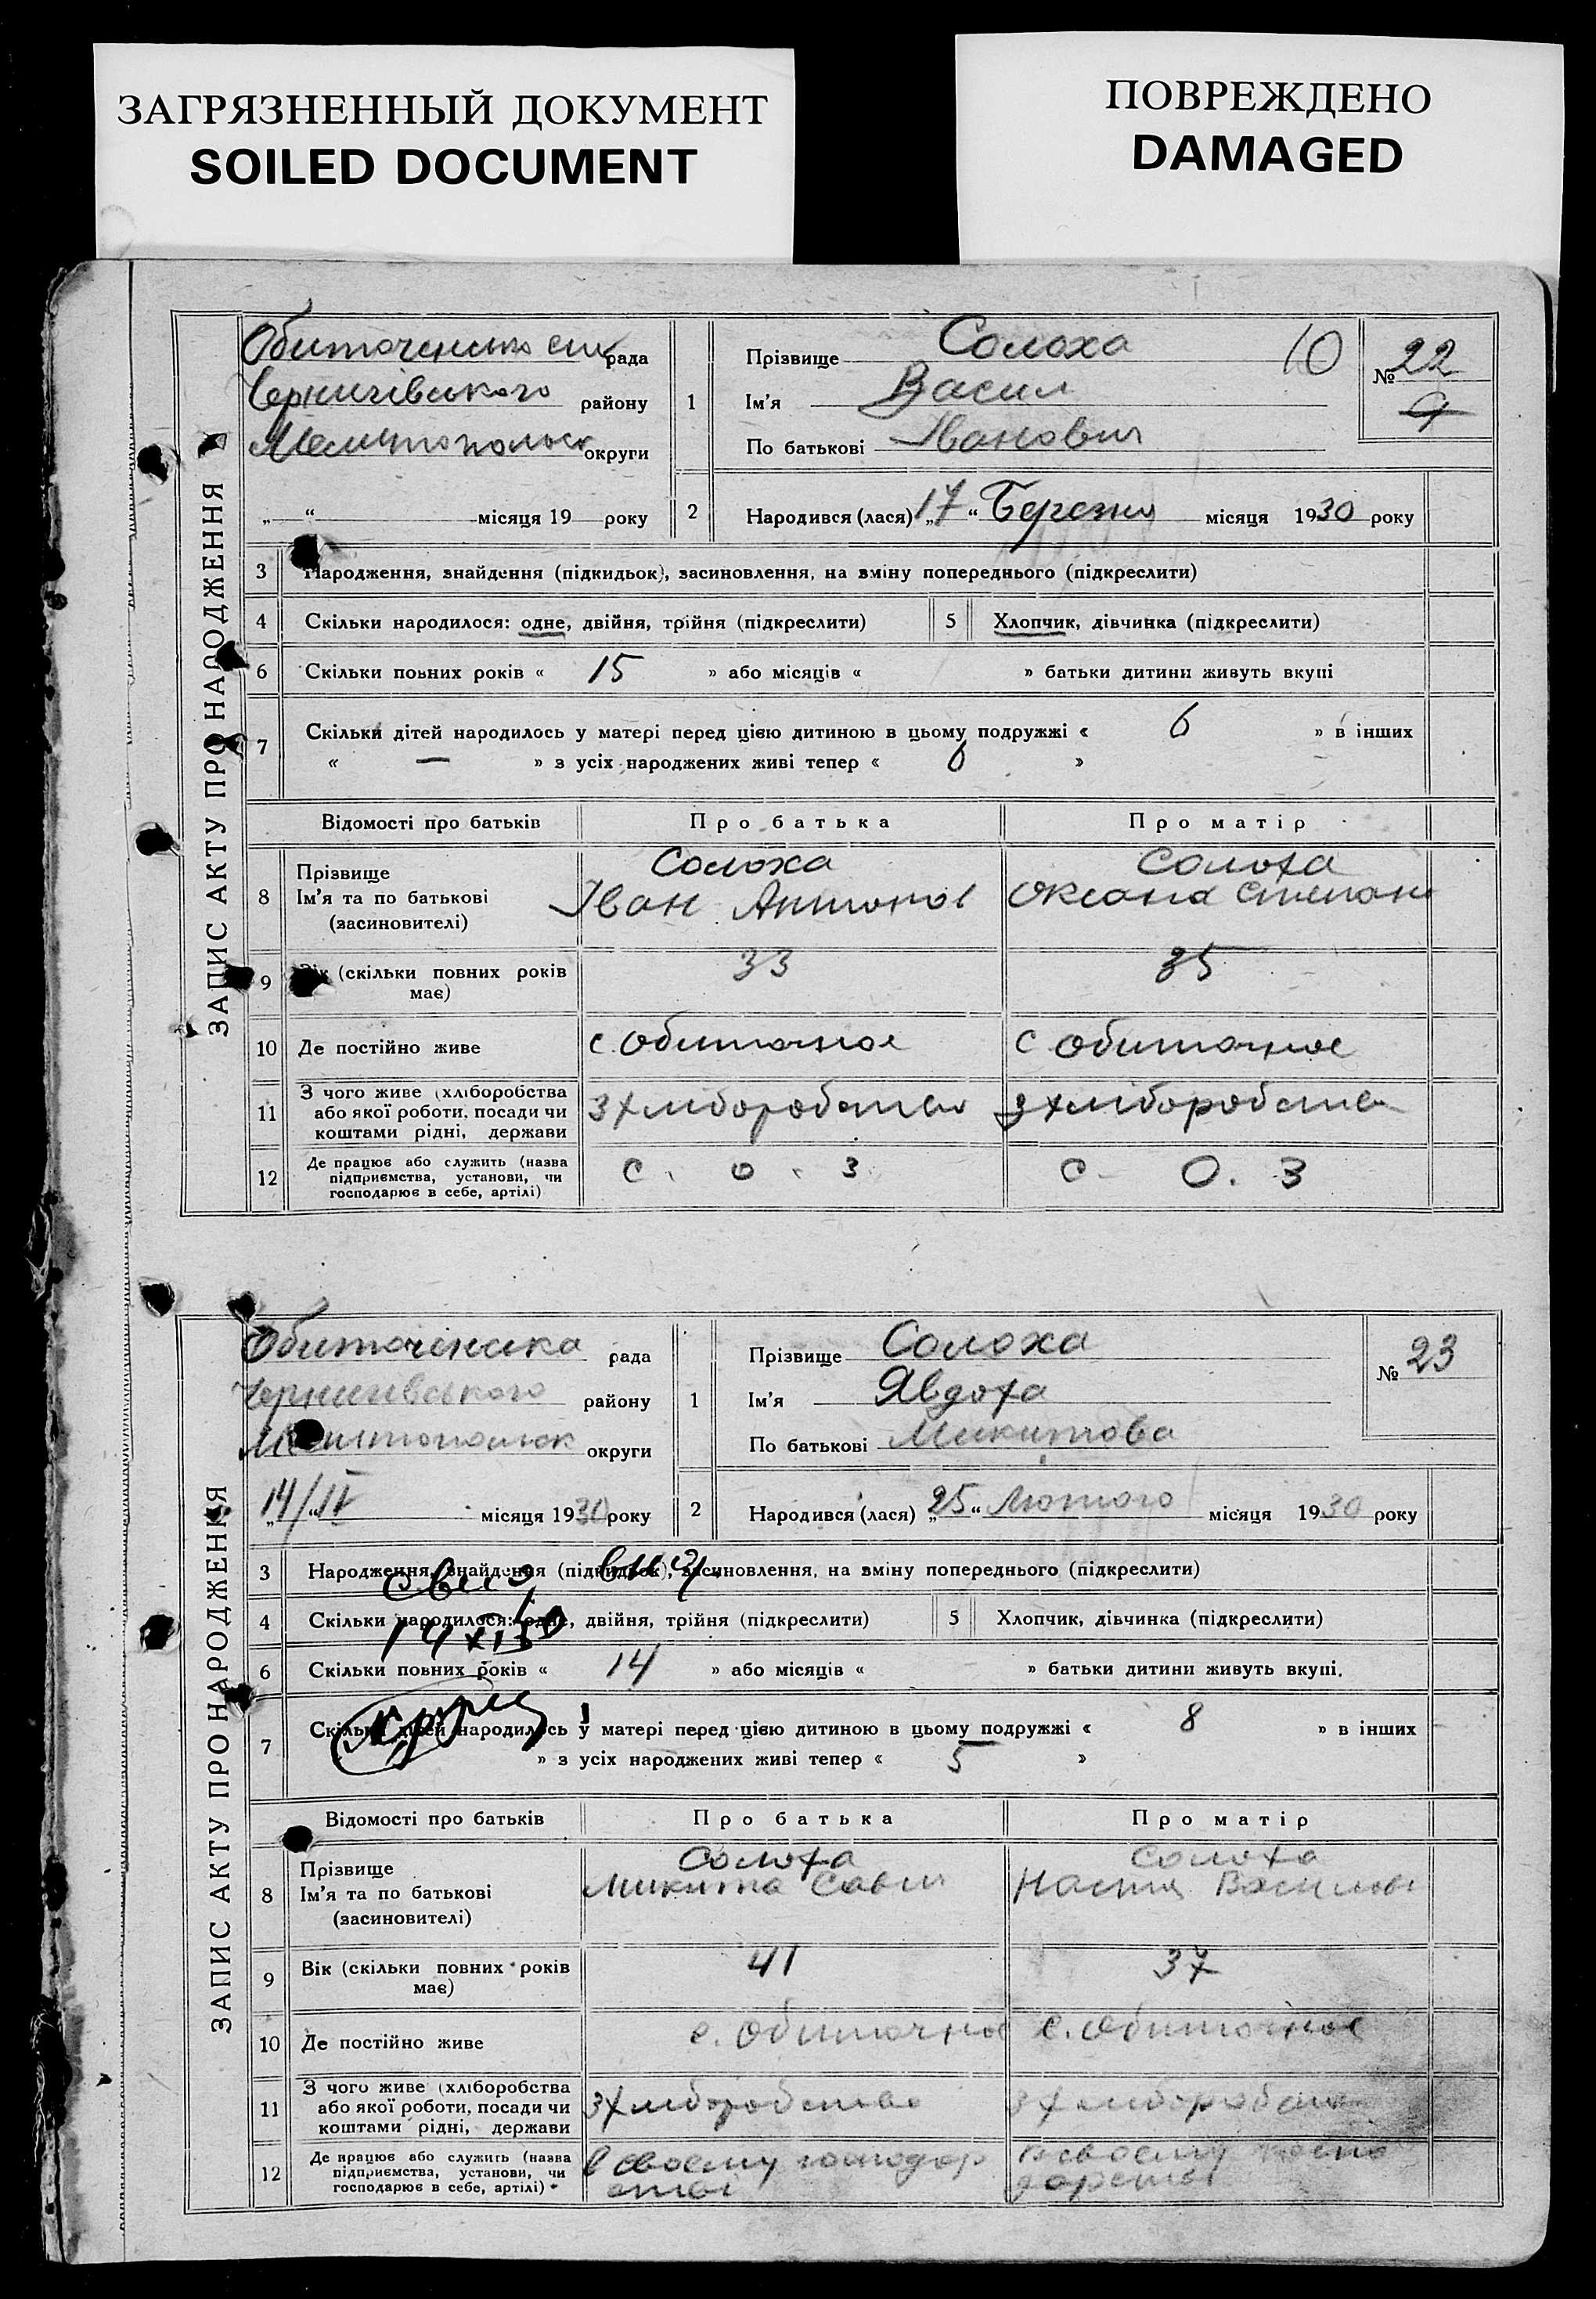 ЗАГРЯЗНЕННЫЙ ДОКУМЕНТ
SOILED DOCUMENT
ПОВРЕЖДЕНО
DAMAGED
ЗАПИС АКТУ ПРО НАРОДЖЕННЯ
рада
Чернигівського району
округи
„ “ місяця 19 року
1 Прізвище Солоха 10
Ім'я Васил
По батькові Іванович
№ 22
9
2 Народився (лася) „17“ Березня місяця 1930 року
3 Народження, знайдення (підкидьок), засиновлення, на зміну попереднього (підкреслити)
4 Скільки народилося: одне, двійня, трійня (підкреслити) 5 Хлопчик, дівчинка (підкреслити)
6 Скільки повних років « 15 » або місяців « » батьки дитини живуть вкупі
7 Скільки дітей народилось у матері перед цією дитиною в цьому подружжі « 6 » в інших
« — » з усіх народжених живі тепер « 6 »
Відомості про батьків Про батька Про матір
8 Прізвище Солоха Солоха
Ім'я та по батькові Іван Антонов Оксана Степан
(засиновителі)
9 Вік (скільки повних років має) 33 35
10 Де постійно живе с. Обиточное с Обиточное
11 З чого живе (хліборобства або якої роботи, посади чи коштами рідні, держави З хліборобства З хліборобства
12 Де працює або служить (назва підприємства, установи, чи господарює в себе, артілі) С. О. З. С. О. З
ЗАПИС АКТУ ПРО НАРОДЖЕННЯ
Обиточенська рада
Чернигівського району
округи
14/IV місяця 1930 року
1 Прізвище Солоха
Ім'я Явдоха
По батькові Микитова
№ 23
2 Народився (лася) „25“ Лютого місяця 1930 року
3 Народження, знайдення (підкидьок), засиновлення, на зміну попереднього (підкреслити)
4 Скільки народилося: одне, двійня, трійня (підкреслити) 5 Хлопчик, дівчинка (підкреслити)
6 Скільки повних років « 14 » або місяців « » батьки дитини живуть вкупі.
7 Скільки дітей народилось у матері перед цією дитиною в цьому подружжі « 8 » в інших
» з усіх народжених живі тепер « 5 »
Відомості про батьків Про батька Про матір
8 Прізвище Солоха Солоха
Ім'я та по батькові Микита Савич Настя Василов
(засиновителі)
9 Вік (скільки повних років має) 41 37
10 Де постійно живе с. Обиточное с. Обиточное
11 З чого живе (хліборобства або якої роботи, посади чи коштами рідні, держави З хліборобства З хліборобства
12 Де працює або служить (назва підприємства, установи, чи господарює в себе, артілі) в своєму господарстві в своєму господарстві